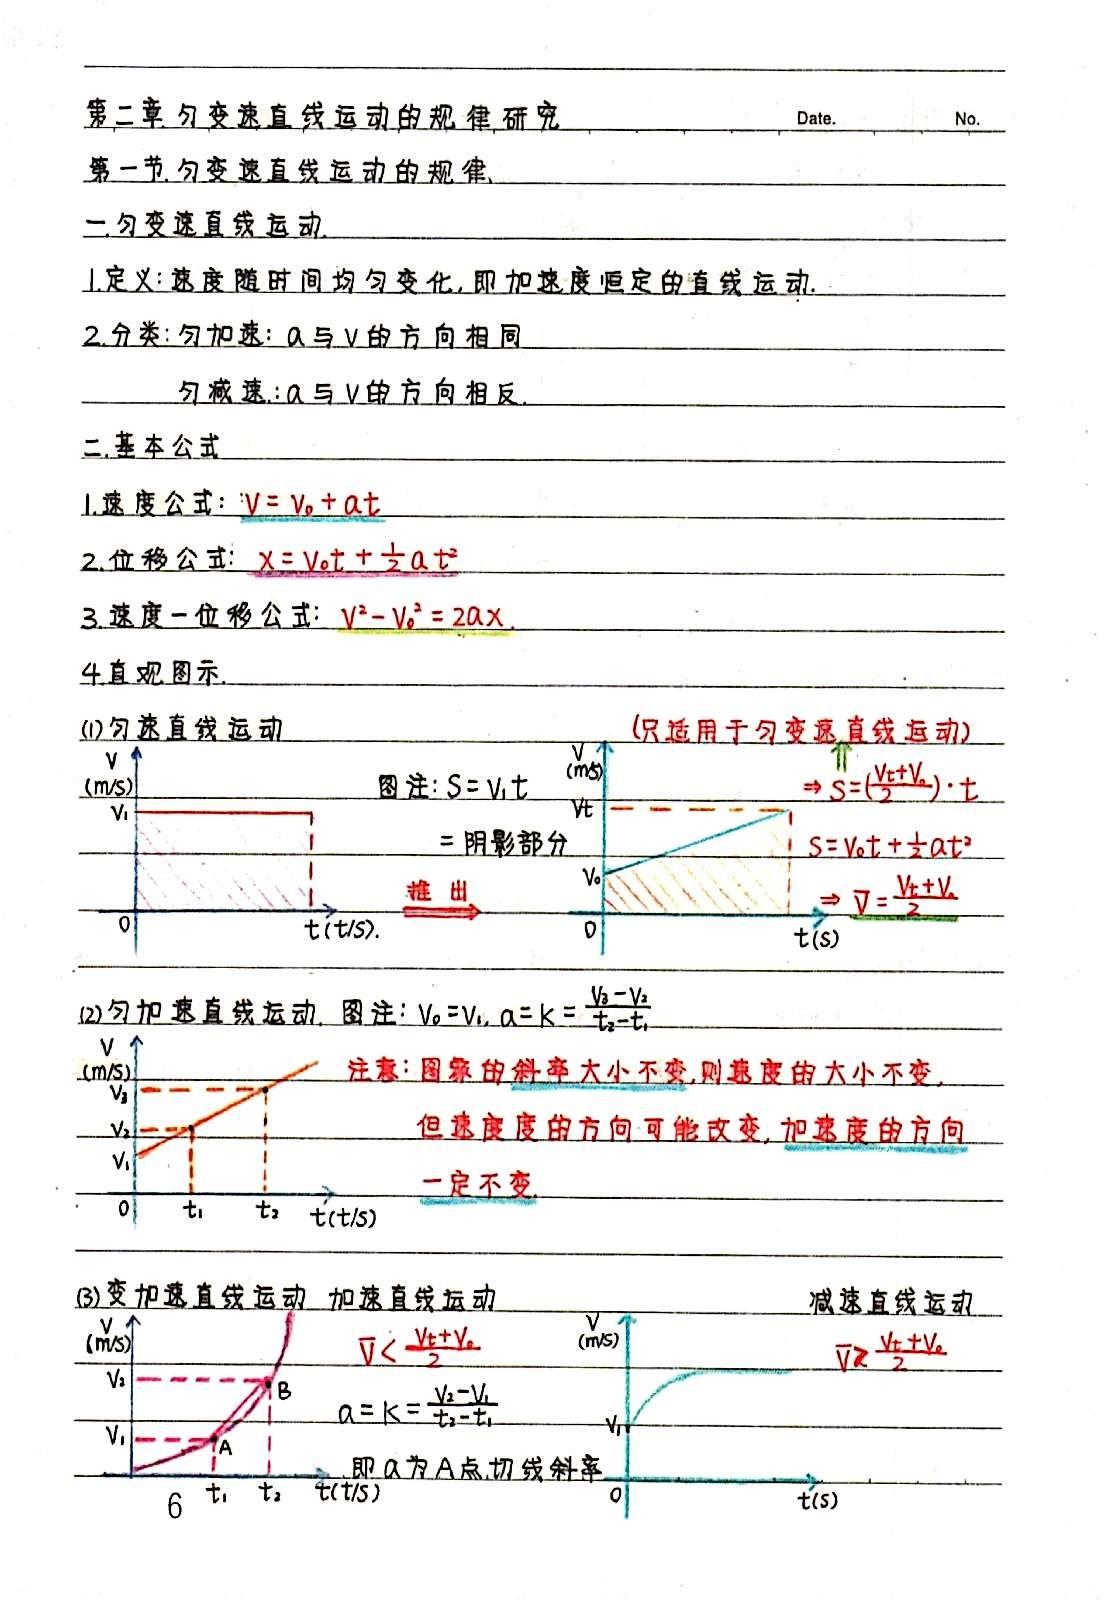 第二章.匀变速直线运动的规律研究 Date. No.
第一节.匀变速直线运动的规律.
一.匀变速直线运动.
1.定义:速度随时间均匀变化,即加速度恒定的直线运动.
2.分类:匀加速:a与V的方向相同
匀减速:a与V的方向相反.
二.基本公式
1.速度公式: V=V₀+at
2.位移公式: x=V₀t+½at²
3.速度一位移公式: V²-V₀²=2ax.
4.直观图示.
(1)匀速直线运动 (只适用于匀变速直线运动)
V (m/s) V₁ 0 t(t/s).
图注:S=V₁t
=阴影部分
推出
V (m/s) Vt V₀ 0 t(s)
⇒ S=(Vt+V₀/2)·t
S=V₀t+½at²
⇒ V̅=Vt+V₀/2
(2)匀加速直线运动. 图注:V₀=V₁, a=k=V₃-V₂/t₂-t₁
V (m/s) V₃ V₂ V₁ 0 t₁ t₂ t(t/s)
注意:图象的斜率大小不变,则速度的大小不变,
但速度度的方向可能改变,加速度的方向
一定不变.
(3)变加速直线运动 加速直线运动 减速直线运动
V (m/s) V₂ V₁ A B t₁ t₂ t(t/s)
V̅<Vt+V₀/2
a=k=V₂-V₁/t₂-t₁
即a为A点切线斜率
V (m/s) V₁ 0 t(s)
V̅≥Vt+V₀/2
6